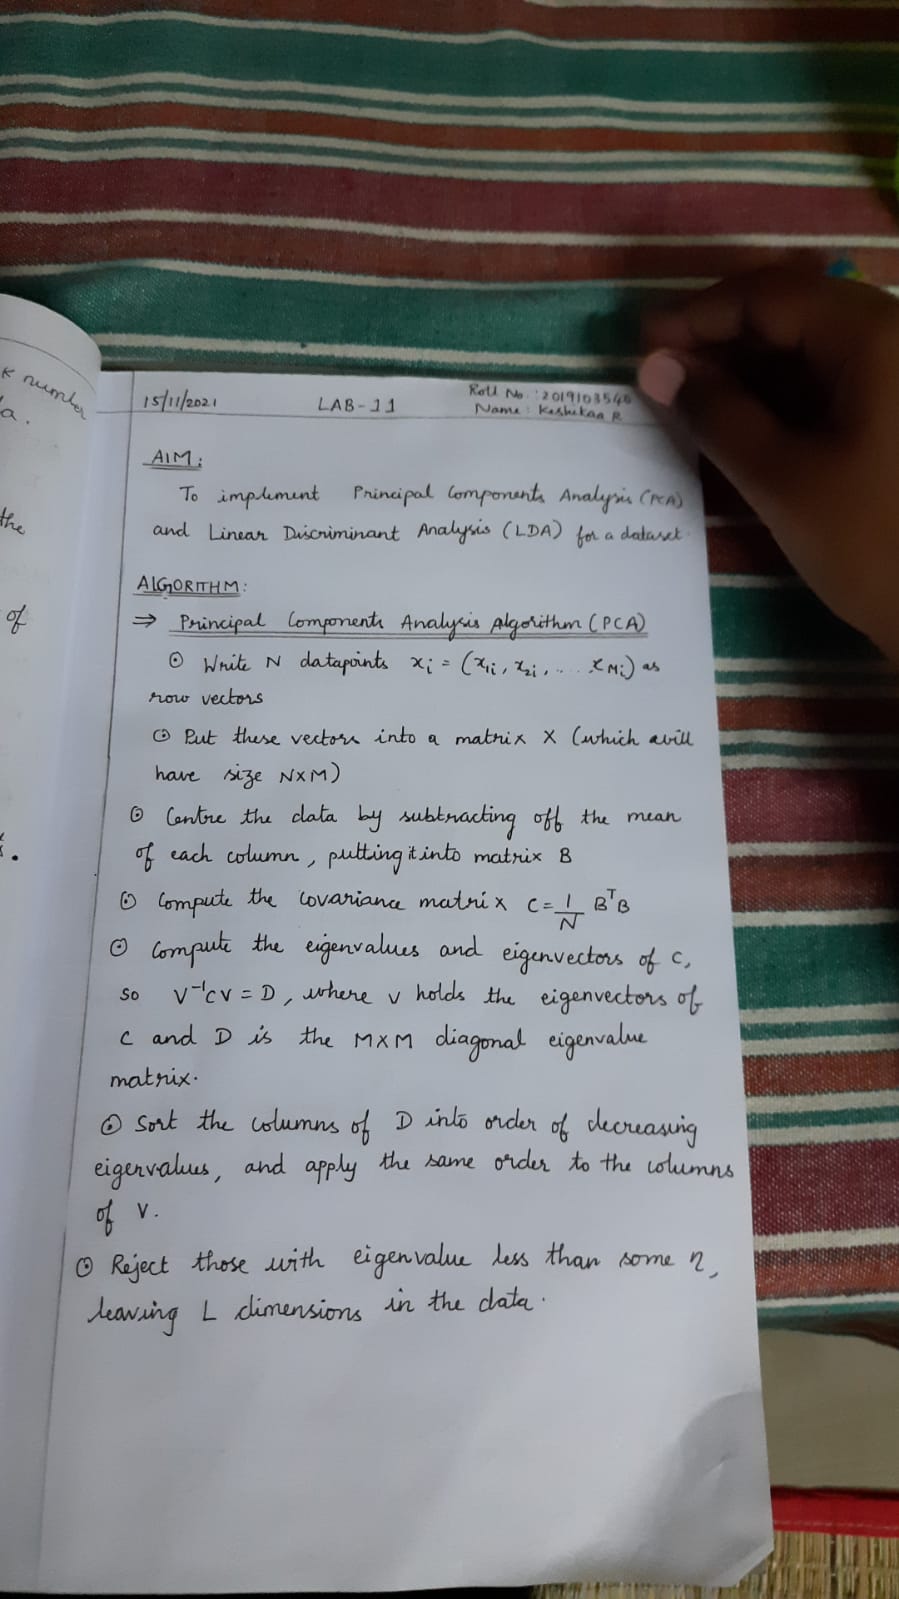 K number
a.
the
of
15/11/2021 LAB-11 Roll No.: 2019103540
Name: Keshikaa R
AIM:
To implement Principal Components Analysis (PCA)
and Linear Discriminant Analysis (LDA) for a dataset.
ALGORITHM:
⇒ Principal Components Analysis Algorithm (PCA)
⊙ Write N datapoints xi = (x1i, x2i, ..... xMi) as
row vectors
⊙ Put these vectors into a matrix X (which will
have size N×M)
⊙ Centre the data by subtracting off the mean
of each column, putting it into matrix B
⊙ Compute the covariance matrix C = 1/N BᵀB
⊙ Compute the eigenvalues and eigenvectors of C,
so V⁻¹CV = D, where V holds the eigenvectors of
C and D is the M×M diagonal eigenvalue
matrix.
⊙ Sort the columns of D into order of decreasing
eigenvalues, and apply the same order to the columns
of V.
⊙ Reject those with eigenvalue less than some η,
leaving L dimensions in the data.